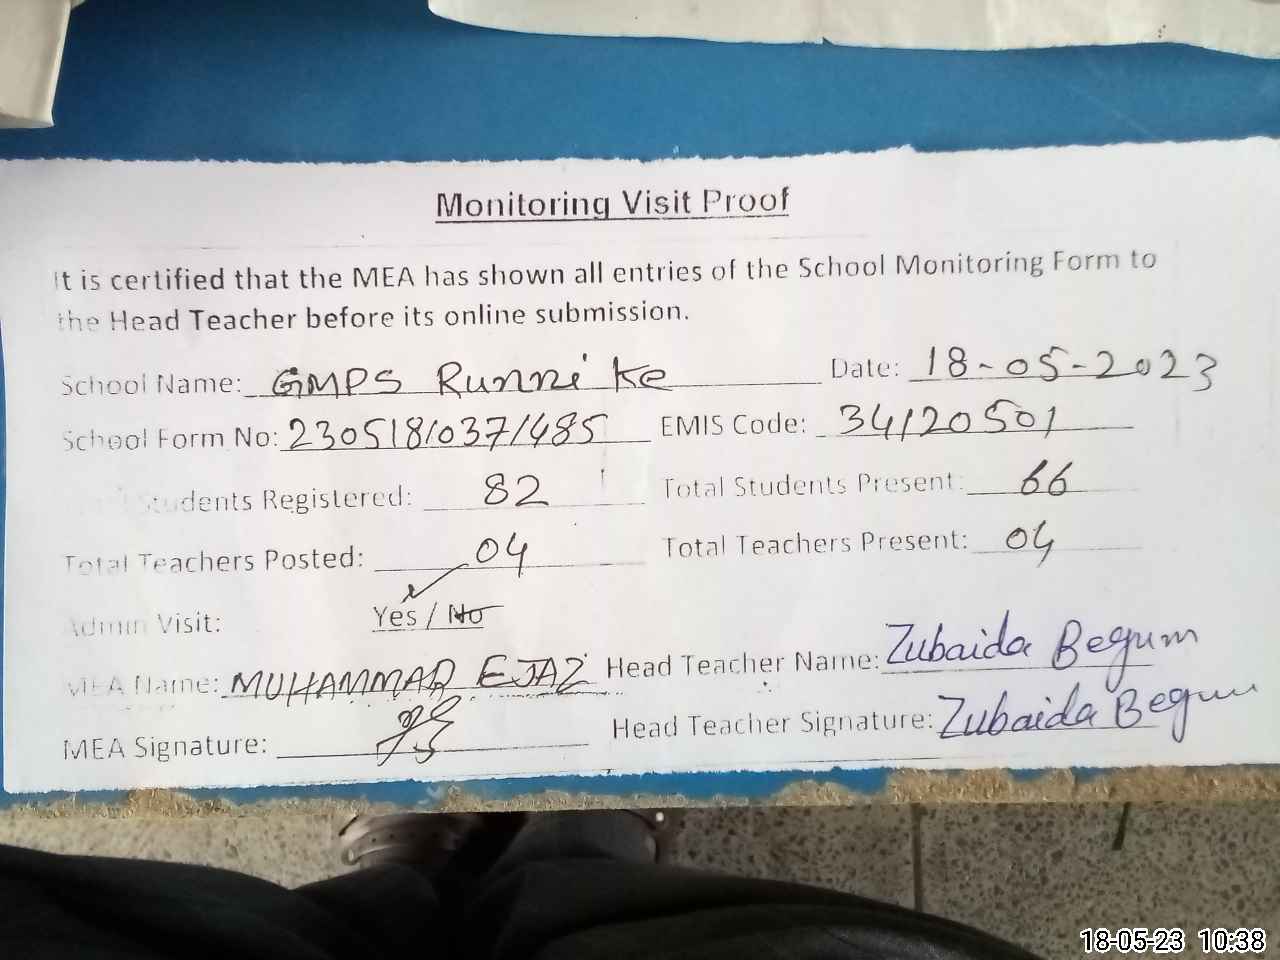 Monitoring Visit Proof
It is certified that the MEA has shown all entries of the School Monitoring Form to
the Head Teacher before its online submission.
School Name: GMPS Runni ke Date: 18-05-2023
School Form No: 230518/037/485 EMIS Code: 34120501
Students Registered: 82 Total Students Present: 66
Total Teachers Posted: 04 Total Teachers Present: 04
Admin Visit: Yes / No
MEA Name: MUHAMMAD EJAZ Head Teacher Name: Zubaida Begum
MEA Signature: Head Teacher Signature: Zubaida Begum
18-05-23 10:38